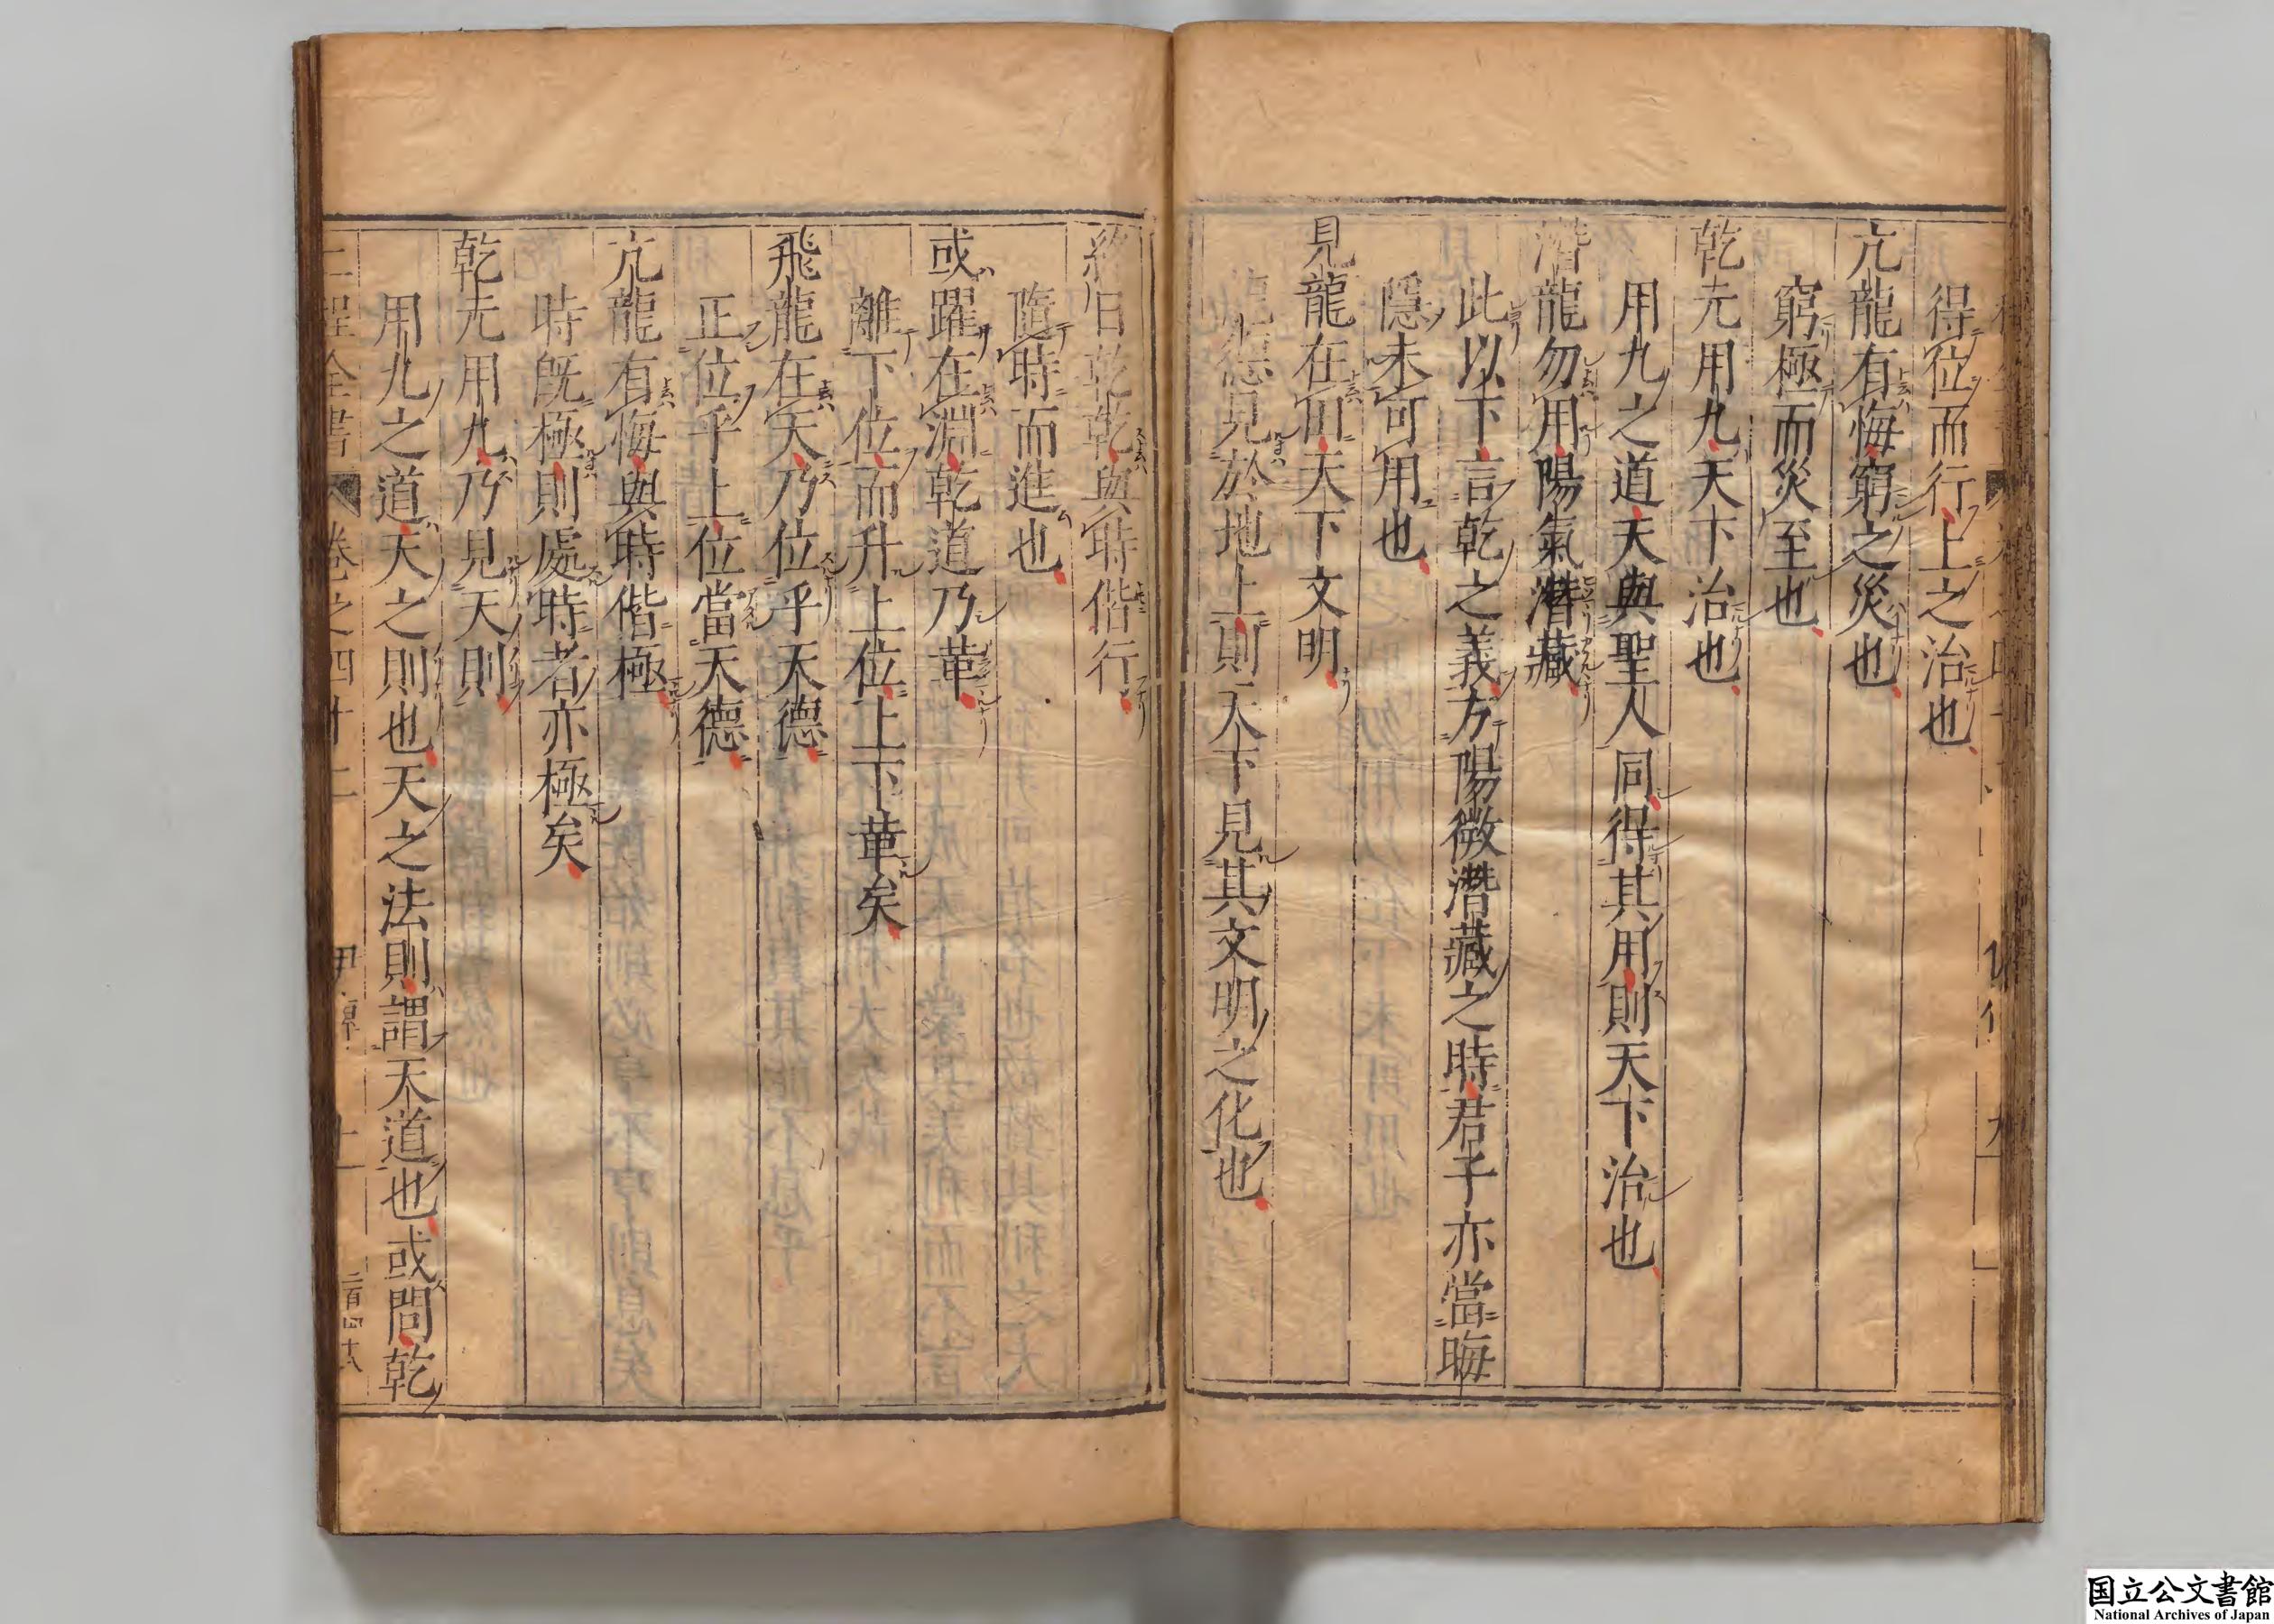 得位而行上之治也
亢龍有悔窮之災也
窮極而災至也
乾元用九天下治也
用九之道天與聖人同得其用則天下治也
潛龍勿用陽氣潛藏
此以下言乾之義方陽微潛藏之時君子亦當晦
隱未可用也
見龍在田天下文明
龍德見於地上則天下見其文明之化也
終日乾乾與時偕行
隨時而進也
或躍在淵乾道乃革
離下位而升上位上下革矣
飛龍在天乃位乎天德
正位乎上位當天德
亢龍有悔與時偕極
時旣極則處時者亦極矣
乾元用九乃見天則
用九之道天之則也天之法則謂天道也或問乾
二程全書 卷之四十二 上 二百四十八
国立公文書館
National Archives of Japan